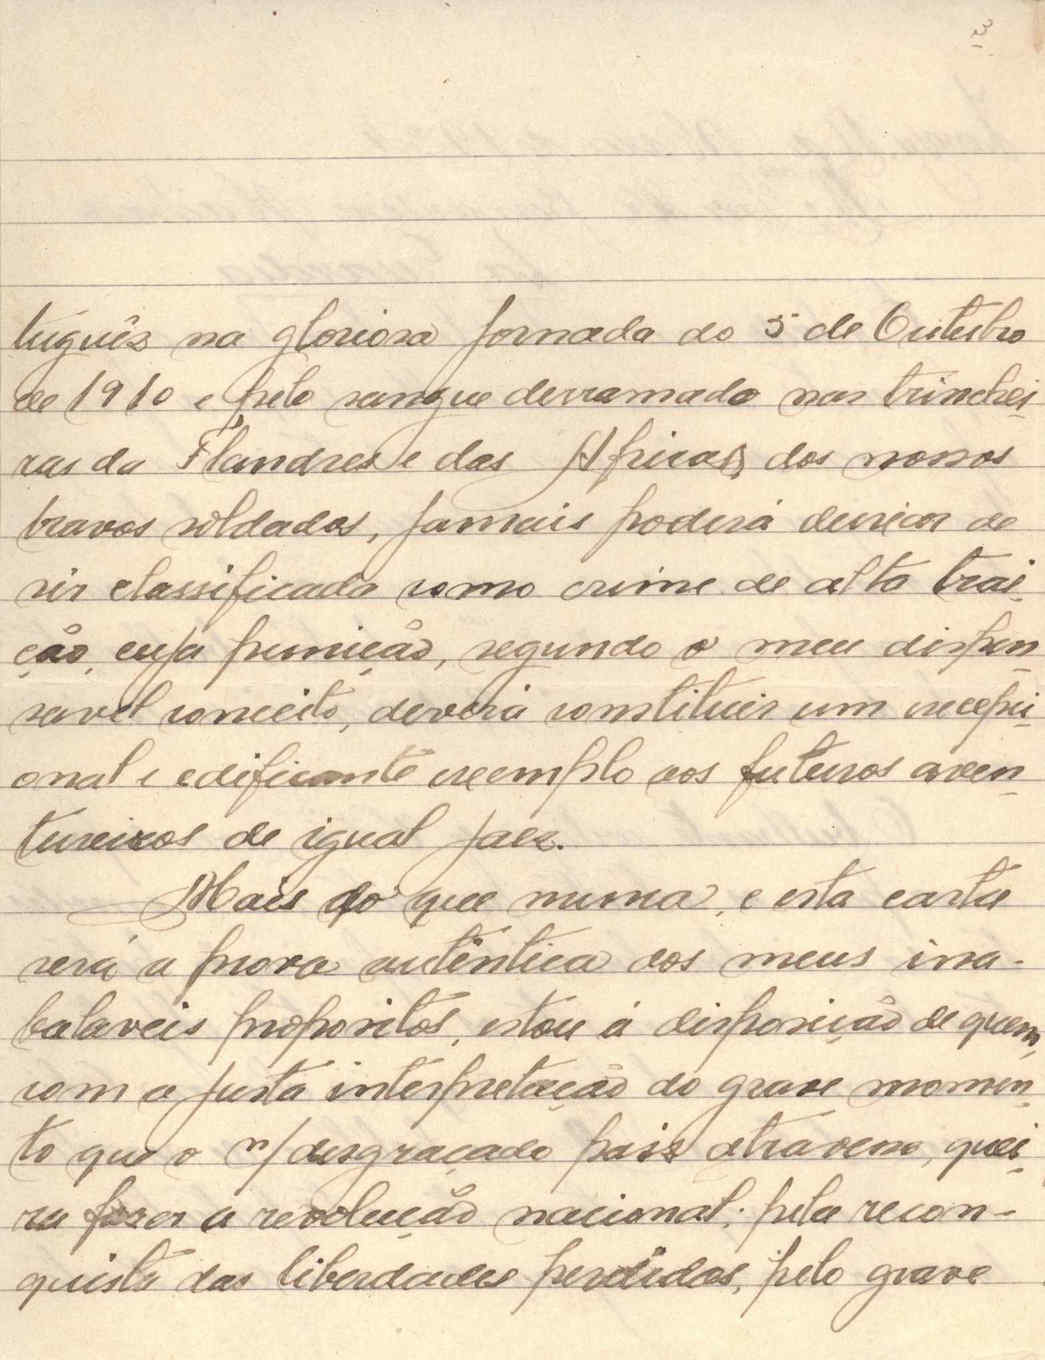 3
tuguês na gloriosa jornada do 5 de Outubro
de 1910 e pelo sangue derramado nas trinchei
ras da Flandres e das Africas, dos nossos
bravos soldados, jamais poderá deixar de
ser classificada como crime de alta trai
ção, cuja punição, segundo o meu dispen
savel conceito, deverá constituir um excepci
onal e edificante exemplo aos futuros aven
tureiros de igual jaez.
Mais do que nunca, e esta carta
será a prova autêntica dos meus ina-
balaveis propositos, estou á disposição de quem,
com a justa interpretação do grave momen
to que o n/ desgraçado pais atravessa, quei
ra fazer a revolução nacional; pela recon-
quista das liberdades perdidas, pelo grave